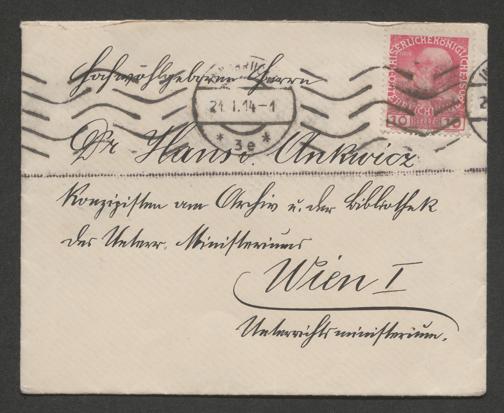 Hochwohlgeboren Herrn
21.I.14-1
* 3e *
10 HELLER 10
Dr Hans Ankwicz
Konzipisten am Archiv u. der Bibliothek
des Unterr. Ministeriums
Wien I
Unterrichtsministerium.